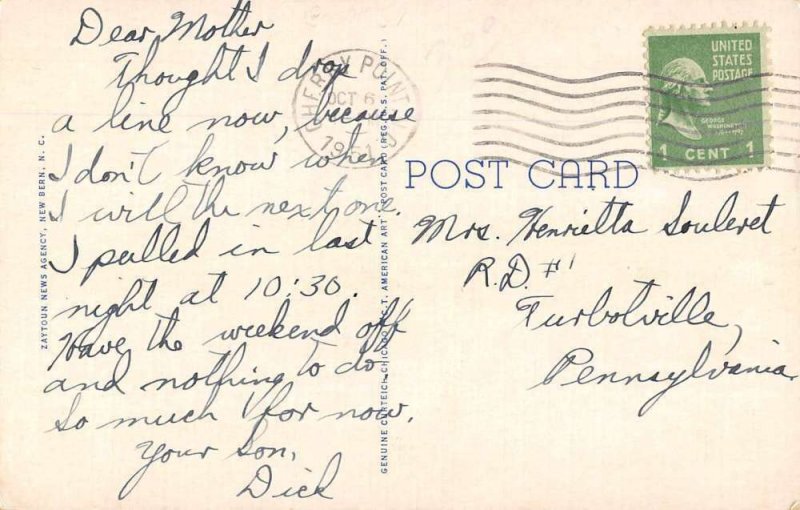 Dear Mother
Thought I drop
a line now, because
I don't know when
I will the next one.
I pulled in last
night at 10:30.
Have the weekend off
and nothing to do.
So much for now.
Your Son,
Dick
ZAYTOUN NEWS AGENCY, NEW BERN, N. C.
GENUINE CURTEICH, CHICAGO "C.T. AMERICAN ART" POST CARD (REG. U. S. PAT. OFF.)
CHERRY POINT
OCT 6
1951
UNITED
STATES
POSTAGE
GEORGE
WASHINGTON
1 CENT 1
POST CARD
Mrs. Henrietta Souleret
R.D. #1
Turbotville,
Pennsylvania